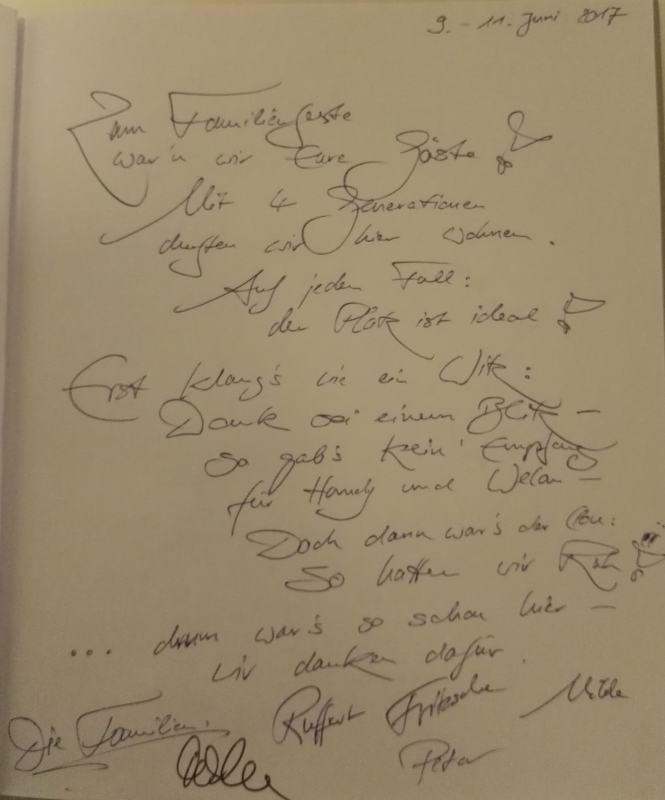 9. - 11. Juni 2017
Zum Familienfeste
war'n wir Eure Gäste!
Mit 4 Generationen
durften wir hier wohnen.
Auf jeden Fall:
der Platz ist ideal!
Erst klang's wie ein Witz:
Dank sei einem Blitz -
so gab's kein' Empfang
für Handy und Welan -
Doch dann war's der Clou:
So hatten wir Ruh!
... drum war's so schön hier -
wir danken dafür.
Die Familien: Ruffert Fritzsche Milde
Peter